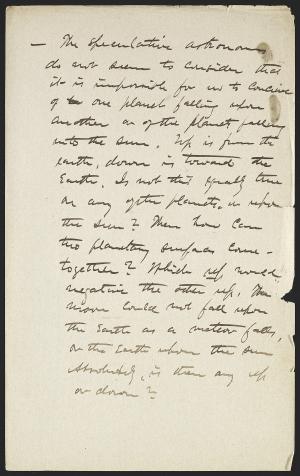 — The speculative astronomers
do not seem to consider that
it is impossible for us to conceive
of one planet falling upon
another or of the planet falling
into the sun. Up is from the
earth, down is toward the
Earth. Is not this equally true
on any of the planets, or upon
the sun? Then how can
two planetary surfaces come
together? Which up would
negative the other up. The
moon could not fall upon
the Earth as a meteor falls,
or the Earth upon the sun
Absolutely, is there any up
or down?